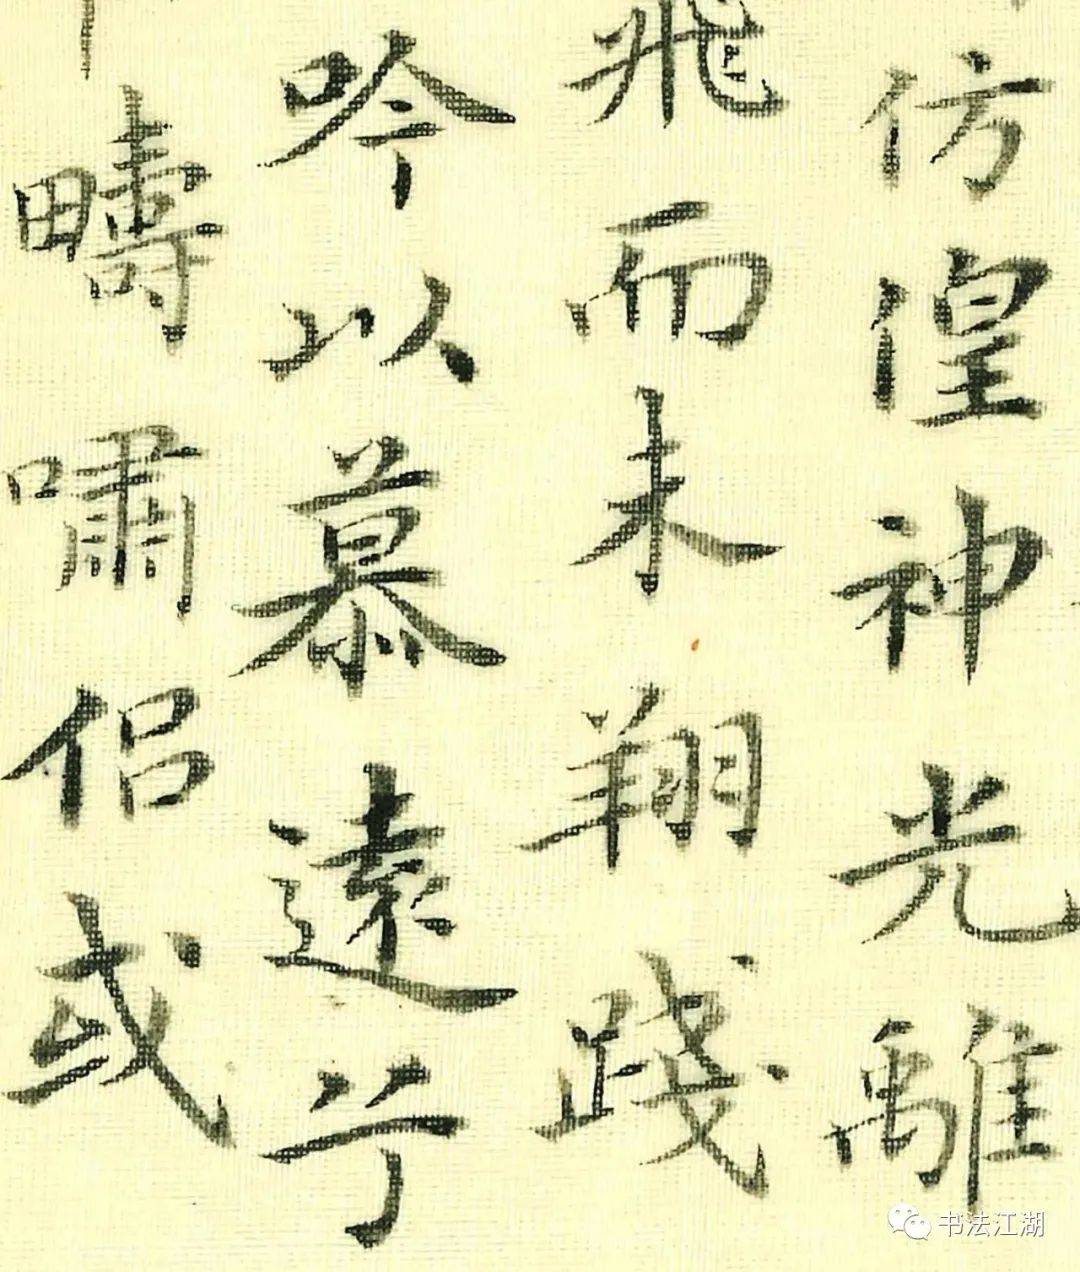 仿偟神光離
飛而未翔踐
吟以慕遠兮
疇嘯侶或
书法江湖